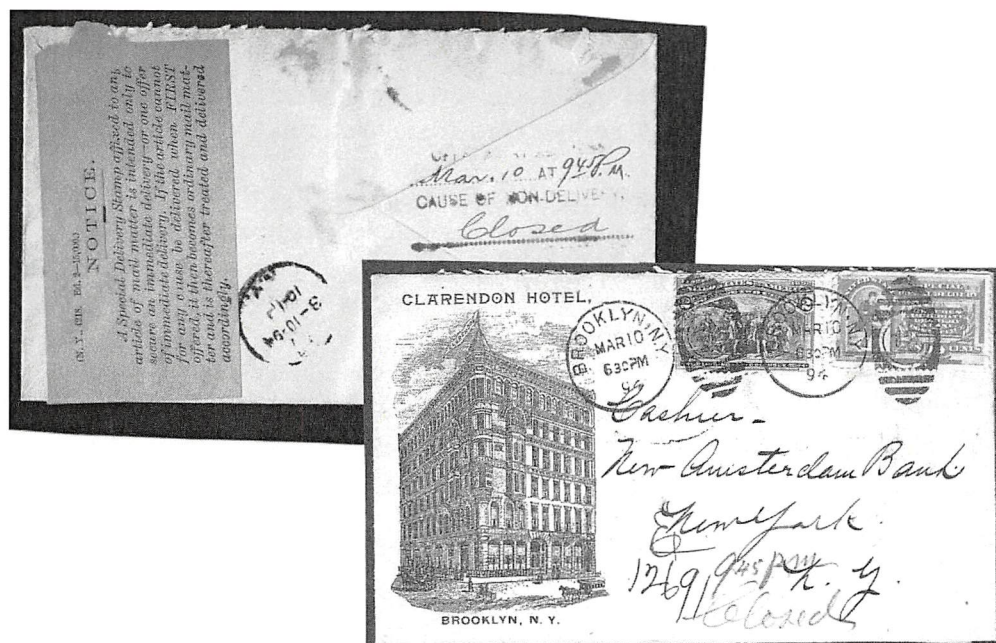 (N. Y., CIS. Ed. 2-15,000.)
NOTICE.
A Special Delivery Stamp affixed to any
article of mail matter is intended only to
secure an immediate delivery—or one offer
of immediate delivery. If the article cannot
for any cause be delivered when FIRST
offered, it then becomes ordinary mail mat-
ter and is thereafter treated and delivered
accordingly.
Mar. 10 AT 9 45 P.M.
CAUSE OF NON-DELIVERY,
Closed
3-10-94
CLARENDON HOTEL,
BROOKLYN, N. Y.
BROOKLYN. N.Y.
MAR 10
630PM
94
630PM
94
Cashier-
New Amsterdam Bank
New York
N. Y.
1269
945 PM
Closed